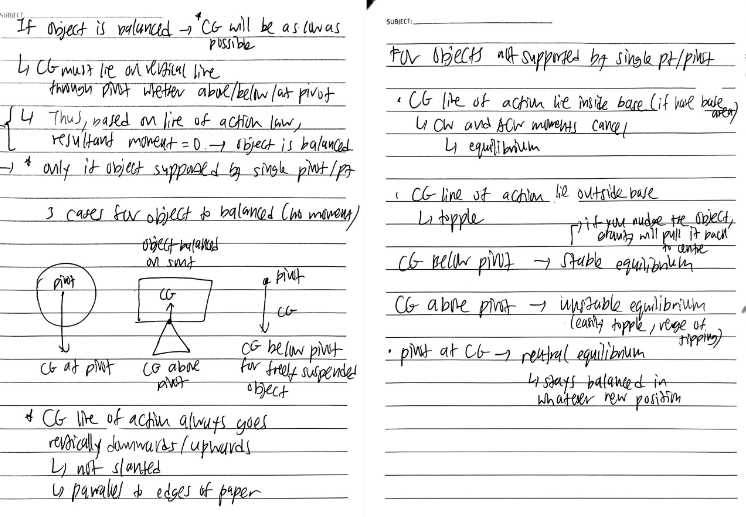 SUBJECT:
If object is balanced → *CG will be as low as
possible
↳ CG must lie on vertical line
through pivot whether above/below/at pivot
↳ Thus, based on line of action law,
resultant moment = 0. → object is balanced
→ * only if object supported by single pivot/pt
3 cases for object to balanced (no moment)
object balanced
on smt
pivot
CG
pivot
CG
CG at pivot
CG above
pivot
CG below pivot
for freely suspended
object
* CG line of action always goes
vertically downwards/upwards
↳ not slanted
↳ parallel to edges of paper
SUBJECT:
For objects not supported by single pt/pivot
· CG line of action lie inside base (if have base
area)
↳ CW and ACW moments cancel
↳ equilibrium
· CG line of action lie outside base
↳ topple
→ if you nudge the object,
gravity will pull it back
to centre
CG below pivot → stable equilibrium
CG above pivot → unstable equilibrium
(easily topple, verge of
tipping)
· pivot at CG → neutral equilibrium
↳ stays balanced in
whatever new position